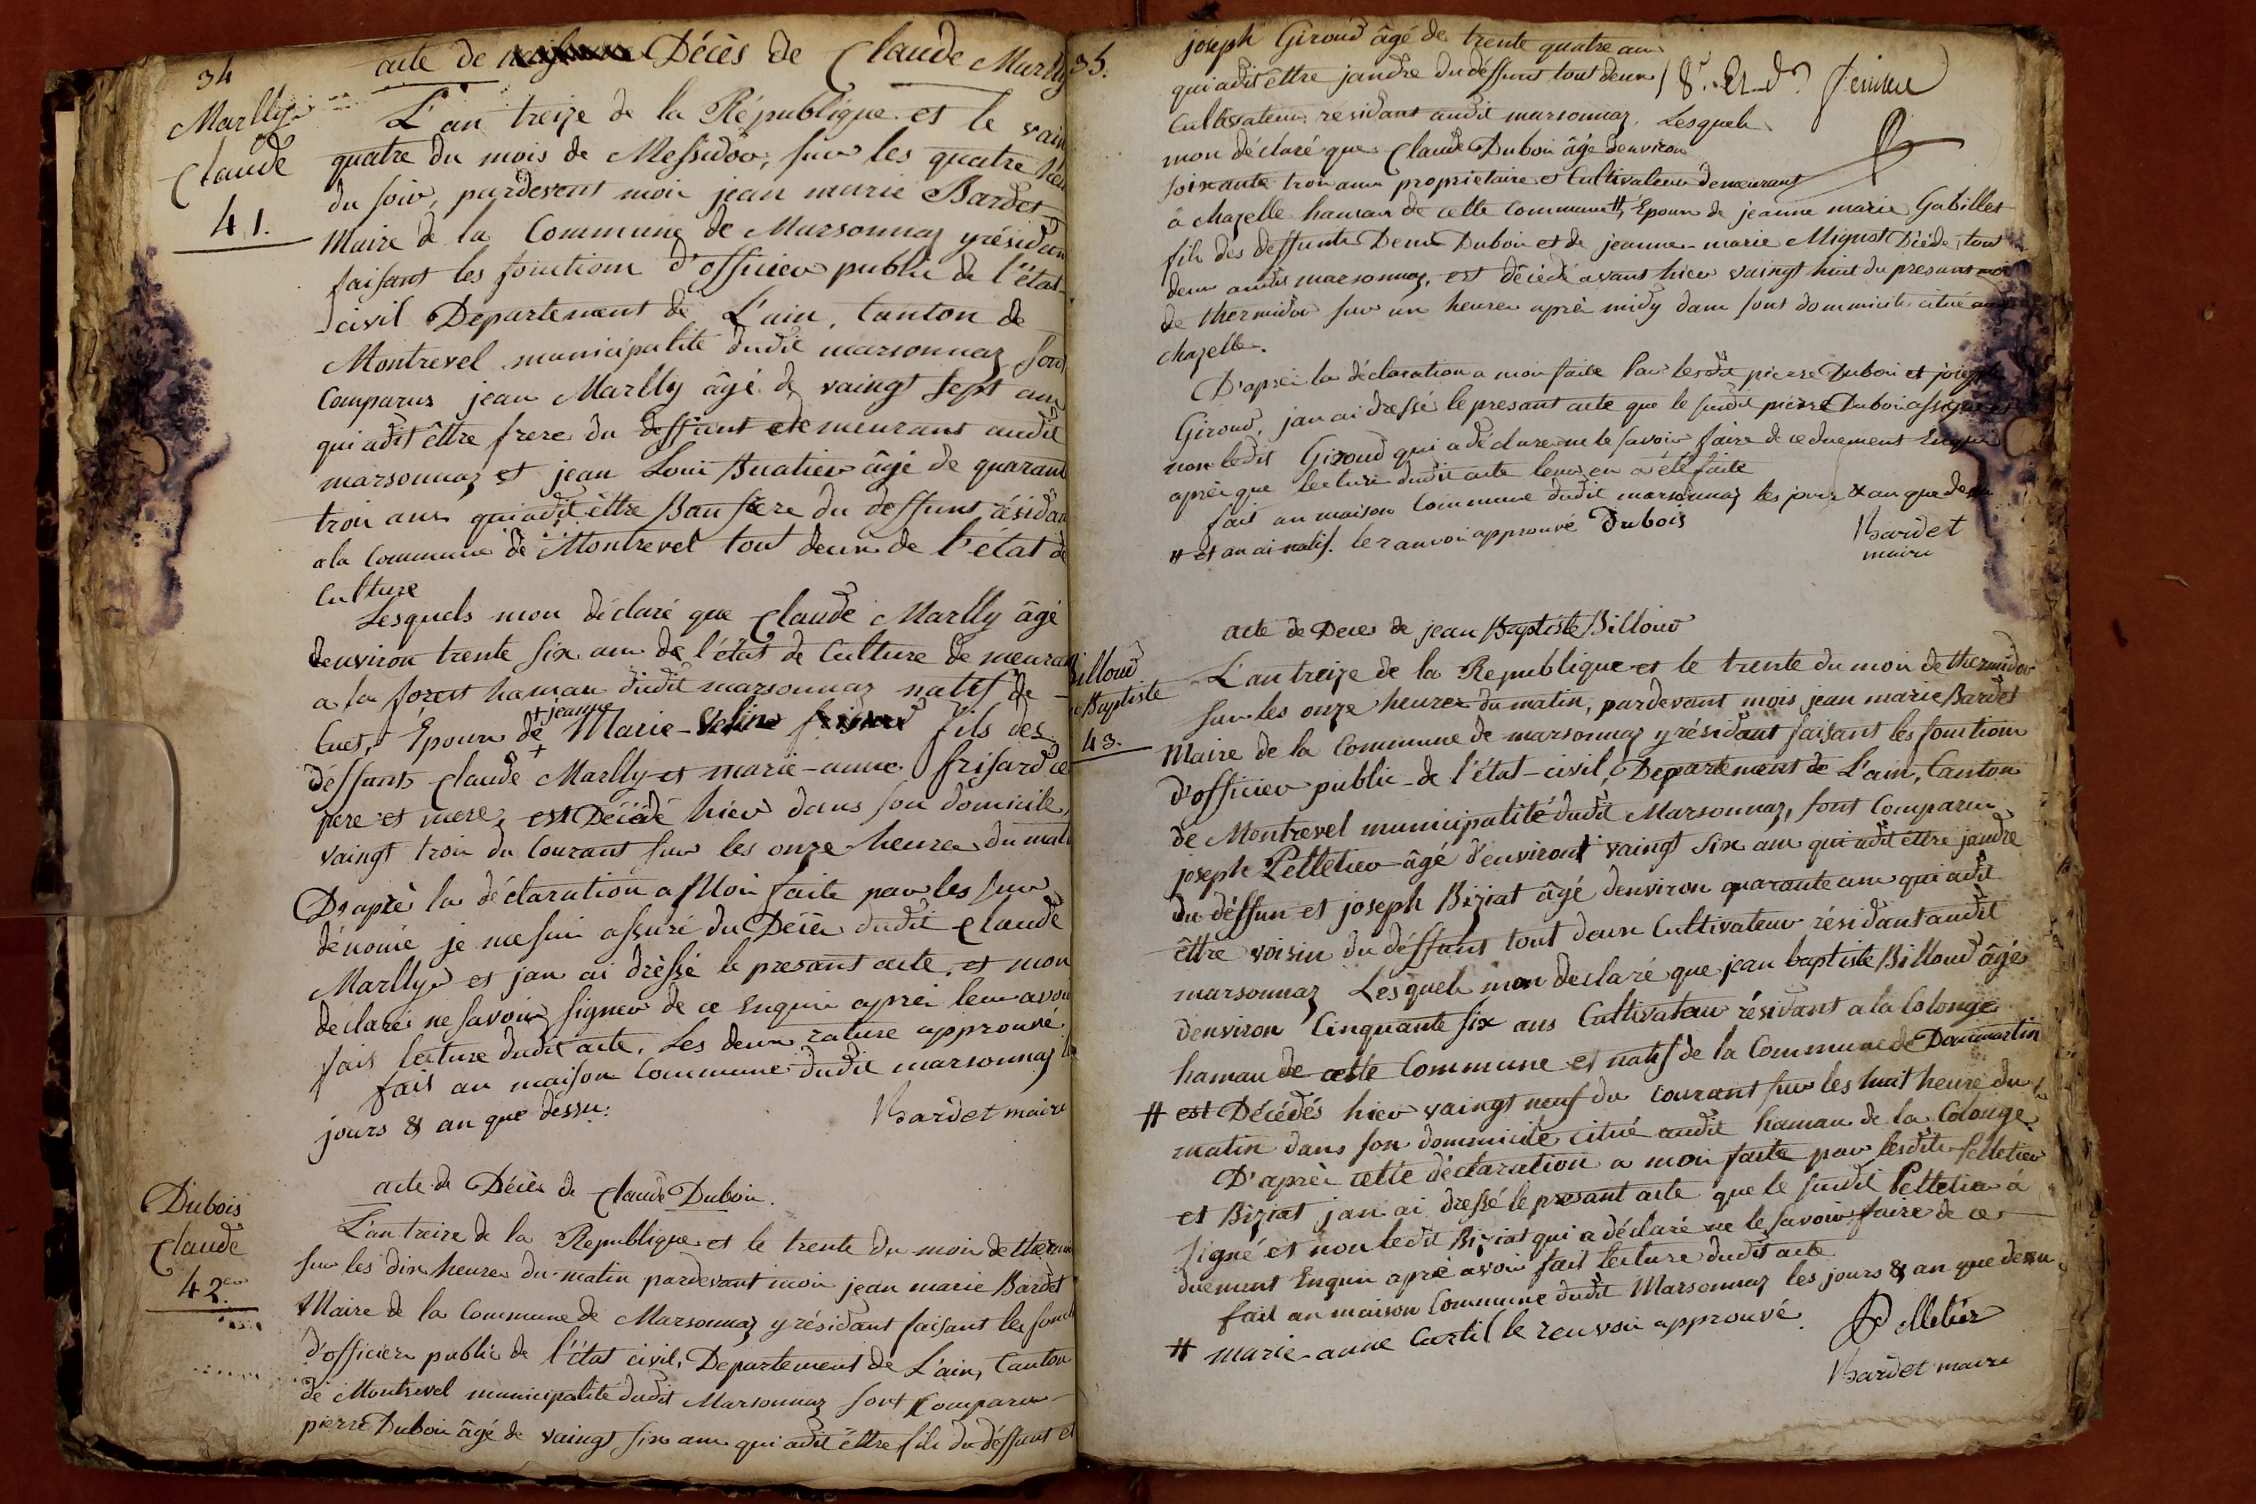 34
acte de Décès de Claude Marlly
Marlly
Claude
41.
L'an treize de la République et le vain
quatre du mois de Messidor, sur les quatre heu
du soir, pardevent moi jean marie Bardet
Maire de la Commune de Marsonnaz y résidan
faisant les fonctions d'officier public de l'état
civil Departement de L'ain, Canton de
Montrevel municipalité dudit marsonnaz sont
Comparus jean Marlly âgé de vaingt sept ans
qui adit êttre frere du deffunt demeurant audit
marsonnaz et jean Loui Buatier âgé de quarant
troi ans qui adit êttre Bau frere du deffunt résidan
a la Commune de Montrevel tout deux de l'état de
Culture
Lesquels mon déclaré que Claude Marlly âgé
denviron trente six ans de l'état de Culture demeuran
a la forest hamau dudit marsonnaz natif de
Cuet, Epoux de + jeanne Marie fils des
déffunts Claude Marlly et marie-anne frisard ce
pere et mere, est Décédé hier dans son domicile
vaingt troi du Courant sur les onze heures du mati
D'aprèe la déclaration a Moi faite par les sur
dénomé je me sui assuré du Décè dudit Claude
Marlly et jan ai dréssé le presant acte, et mon
declaré ne savoir signer de ce Enqui aprèi leur avoir
fait lecture dudit acte. Les deux rature approuvé
fait an maison Commune dudit marsonnaz le
jours & an que déssu.
Bardet maire
acte de Décès de Claude Duboi.
Dubois
Claude
42.
L'an treize de la Republique et le trente du moi de therm
sur les dix heures du matin pardevant moi jean marie Bardet
Maire de la Commune de Marsonnaz y résidant faisant les foncti
d'officier public de l'état civil, Departement de L'ain, Canton
de Montrevel municipalité dudit Marsonnaz sont Comparu
pierre Duboi âgé de vaingt six ans qui adit êttre fils du déffunt et
35.
joseph Giroud âgé de trente quatre ans
qui adit êttre jandre du déffunt tout deux
Cultivateur residant audit marsonnaz. Lesquels
mon déclaré que Claude Duboi âgé denviron
soixante troi ans proprietaire et Cultivateur demeurant
à chazelle hamau de cette Commune #, Epoux de jeanne marie Gabillet
fils des deffunts Deni Duboi et de jeanne-marie Mignot Décédé, tout
deux audit marsonnaz, est décédé avant hier vaingt huit du presant moi
de thermidor sur un heure aprèi midy dans sont dommicile citué au
chazelle.
D'aprèi la déclaration a moi faite Par lesdit pierre Duboi et joseph
Giroud, jan ai dressé le presant acte que le susdit pierre Duboi a signé et
non ledit Giroud qui a déclaré ne le savoir faire de ce duement Enqui
aprèi que lecture dudit acte leur en a été faite
fait an maison Commune dudit marsonnaz les jours & an que dessu
# et an ai natif. le ranvoi approuvé Dubois
Bardet
maire
acte de Deces de jean Baptiste Billoud
Billoud
Baptiste
43.
L'an treize de la Republique et le trente du moi de thermidor
sur les onze heures du matin, pardevant mois jean marie Bardet
Maire de la Commune de marsonnaz y résidant faisant les fonctions
d'officier public de l'état-civil, Departement de L'ain, Canton
de Montrevel municipalité dudit Marsonnaz, sont Comparu
joseph Pelletier âgé d'environt vaingt six ans qui adit êttre jandre
du déffun et joseph Biziat âgé denviron quarante ans qui adit
êttre voisin du déffunt tout deux Cultivateur résidant audit
marsonnaz Lesquels mon declaré que jean baptiste Billoud âgé
denviron Cinquante six ans Cultivateur résidant a la Colonge
hamau de cette Commune et natif de la Commune de Dommartin
# est Décédés hier vaingt neuf du Courant sur les huit heure du
matin dans son dommicile citué audit hamau de la Colonge
D'aprèi cette déclaration a moi faite par lesdits Pelletier
et Biziat jan ai dressé le presant acte que le susdit Pelletier à
signé et non ledit Biziat qui a déclaré ne le savoir faire de ce
duement Enqui aprè avoir fait lecture dudit acte
fait an maison Commune dudit Marsonnaz les jours & an que dessu
# marie-anne Curtil le renvoi approuvé
Pelletier
Bardet maire